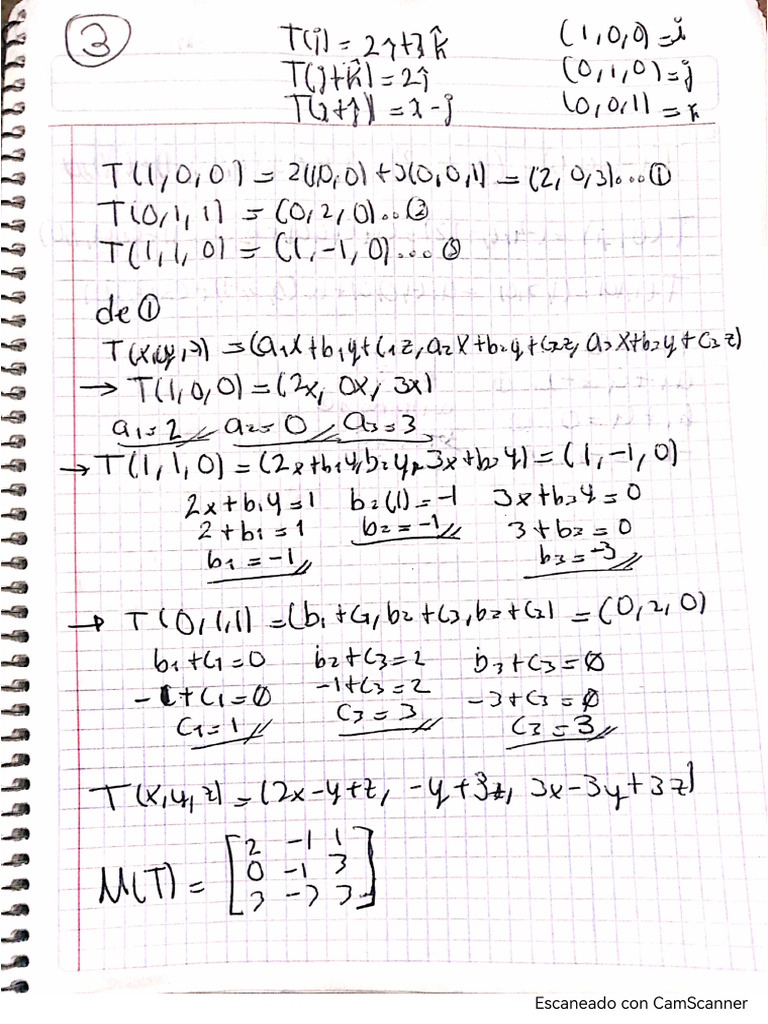 3
T(i) = 2j+3k̂ (1,0,0)=i
T(j+k̂)=2ĵ (0,1,0)=j
T(i+j)=i-j (0,0,1)=k
T(1,0,0) = 2(1,0,0)+3(0,0,1) = (2,0,3)...①
T(0,1,1) = (0,2,0)..②
T(1,1,0) = (1,-1,0)...③
de ①
T(x,y,z) = (a₁x+b₁y+c₁z, a₂x+b₂y+c₂z, a₃x+b₃y+c₃z)
→ T(1,0,0)=(2x, 0x, 3x)
a₁=2 a₂=0 a₃=3
→ T(1,1,0) = (2x+b₁y, b₂y, 3x+b₃y) = (1,-1,0)
2x+b₁y=1 b₂(1)=-1 3x+b₃y=0
2+b₁=1 b₂=-1 3+b₂=0
b₁=-1 b₃=-3
→ T(0,1,1)=(b₁+c₁, b₂+c₃, b₂+c₂) = (0,2,0)
b₁+c₁=0 b₂+c₃=2 b₃+c₃=0
-1+c₁=0 -1+c₃=2 -3+c₃=0
c₁=1 c₃=3 c₃=3
T(x,y,z)=(2x-y+z, -y+3z, 3x-3y+3z)
M(T) = [2 -1 1
0 -1 3
3 -3 3]
Escaneado con CamScanner